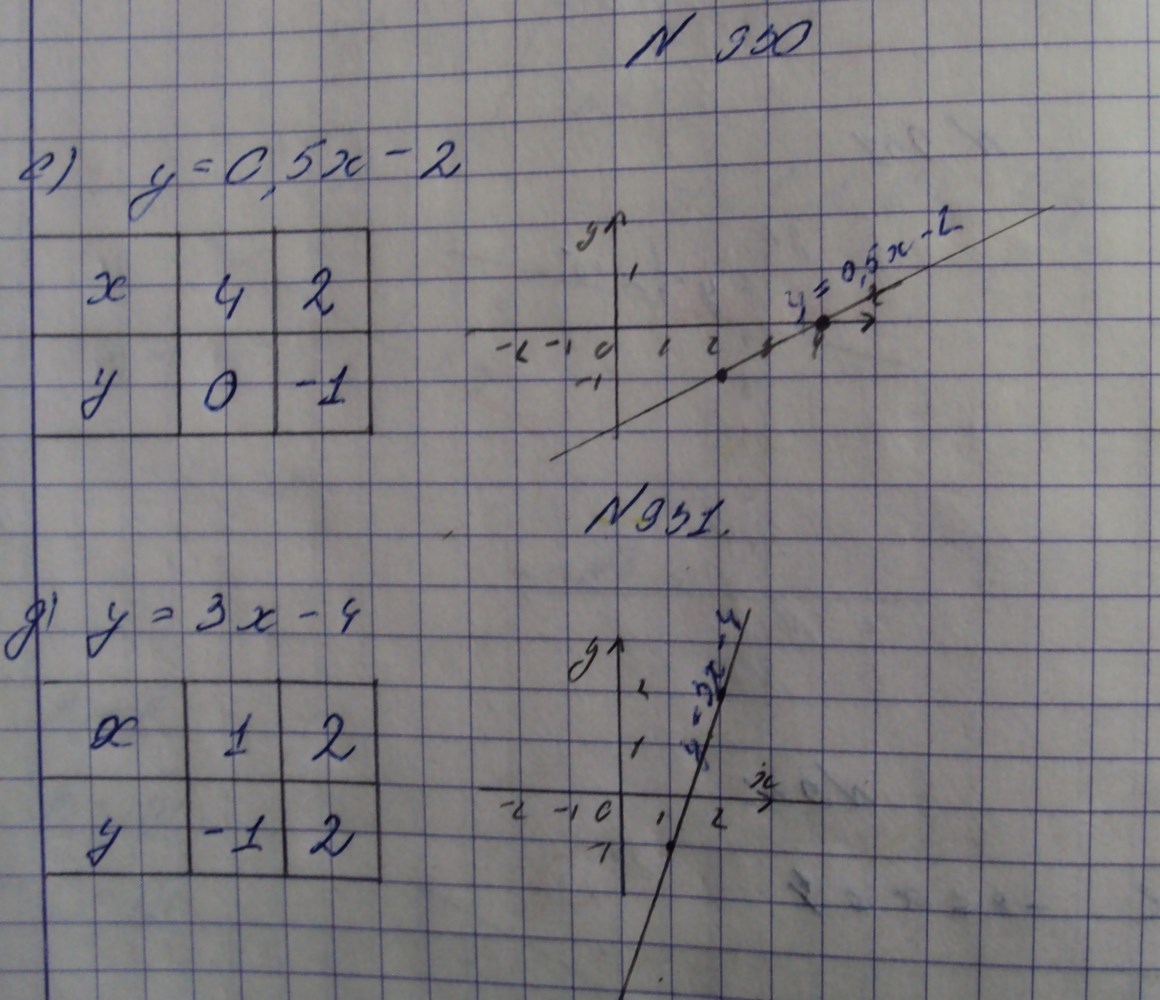 N 930
с) y = 0,5x - 2
x 4 2
y 0 -1
y
1
-2 -1 0 1 2 3 4
-1
y = 0,5x - 2
N 931.
д) y = 3x - 4
x 1 2
y -1 2
y
2
1
-2 -1 0 1 2
x
-1
y = 3x - 4